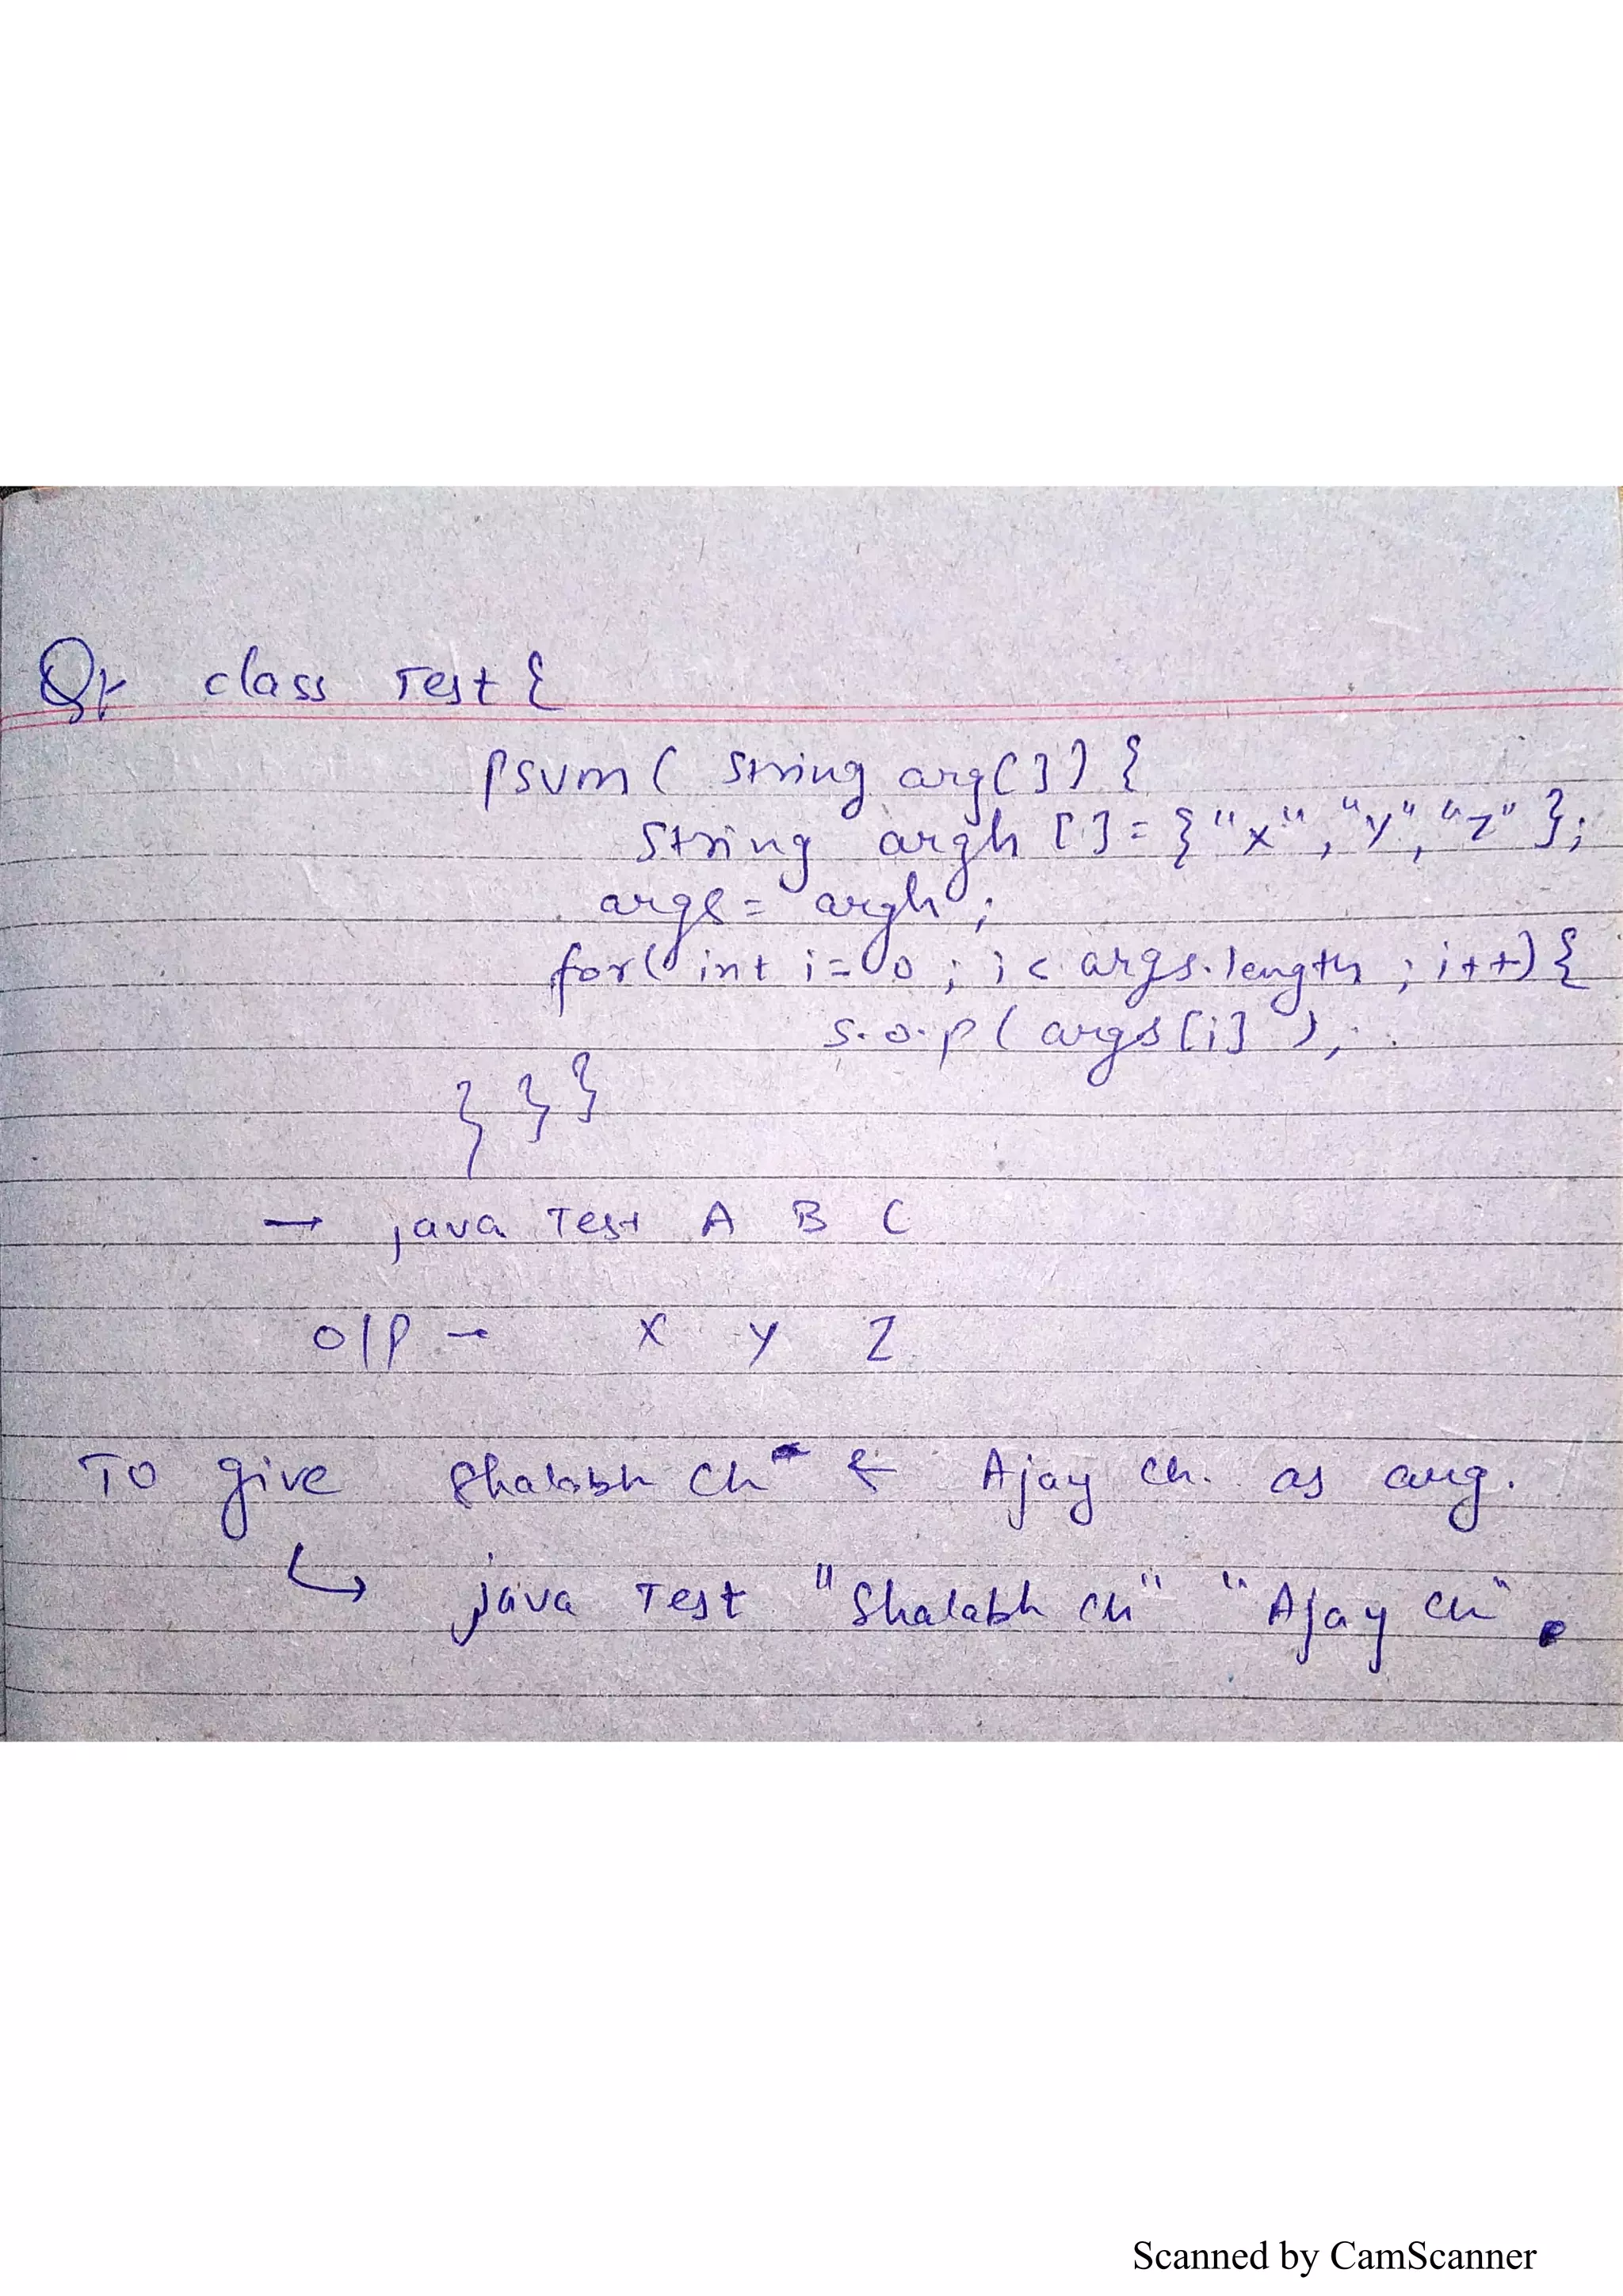 Q→ class Test {
psvm ( String arg[]) {
String argh [] = {"X", "Y", "Z" };
args = argh ;
for( int i=0 ; i< args.length ; i++) {
s.o.p ( args[i] );
} } }
→ java Test A B C
O/P → X Y Z
To give Shalabh Ch & Ajay Ch. as arg.
↳ java Test "Shalabh Ch" "Ajay Ch".
Scanned by CamScanner